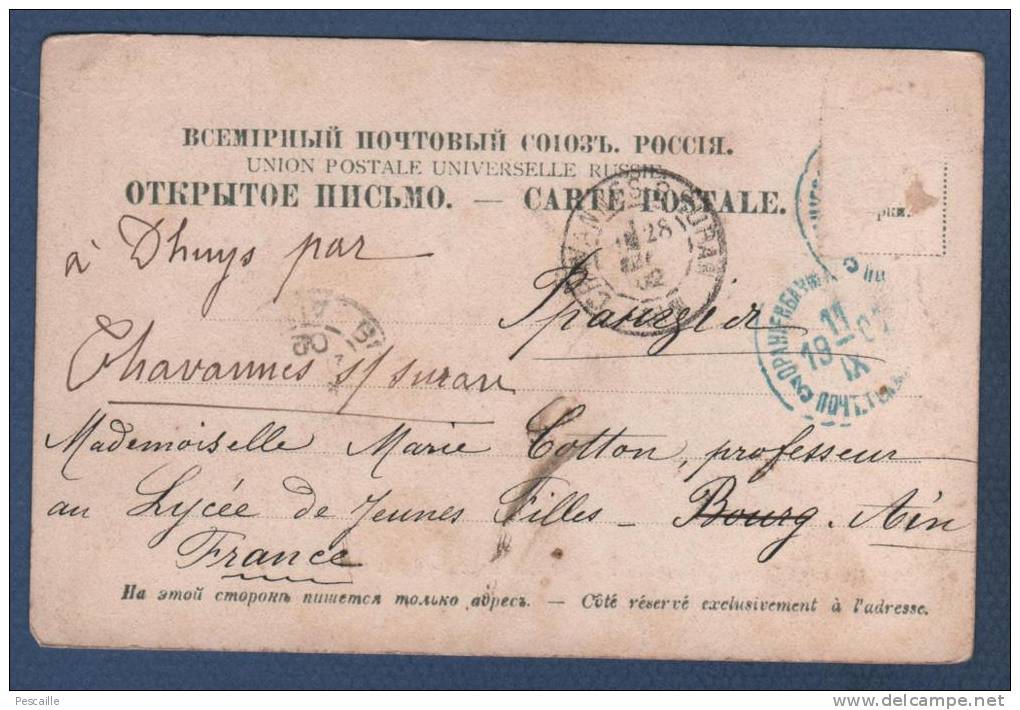 ВСЕМІРНЫЙ ПОЧТОВЫЙ СОЮЗЪ. РОССІЯ.
UNION POSTALE UNIVERSELLE RUSSIE
ОТКРЫТОЕ ПИСЬМО. — CARTE POSTALE.
à Dhuys par
Chavannes s/ suran
Mademoiselle Marie Cotton, professeur
au Lycée de Jeunes Filles – Bourg. Ain
France
На этой сторонѣ пишется только адресъ. — Côté réservé exclusivement à l'adresse.
CHAVANNES S. SURAN
28
02
ОРАНIЕНБАУМЪ
11
IX
ПОЧТ.ТЕЛ
Pescaille
www.delcampe.net